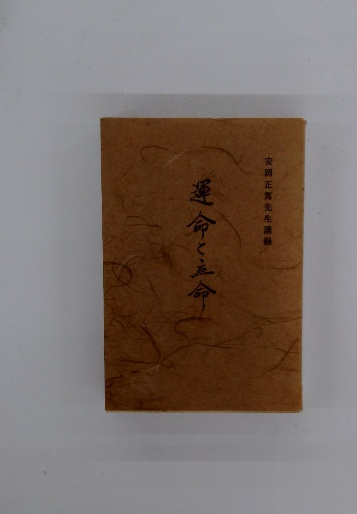 安岡正篤先生講録
運命と立命